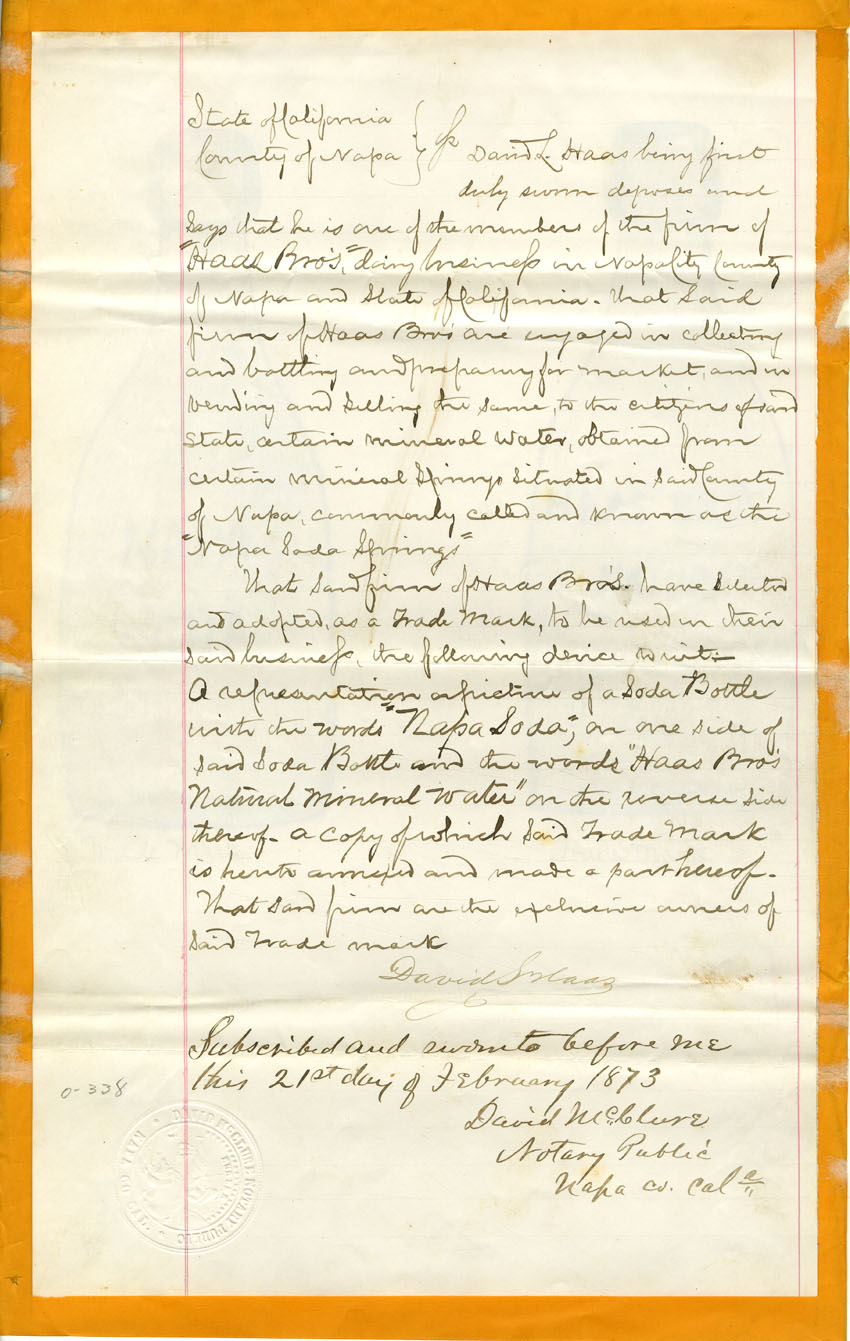 State of California
County of Napa } ss David L. Haas being first
duly sworn deposes and
Says that he is one of the members of the firm of
"Haas Bro's," doing business in Napa City County
of Napa and State of California. That Said
firm of Haas Bro's are engaged in collecting
and bottling and preparing for market, and in
vending and selling the same, to the citizens of said
State, certain mineral water, obtained from
certain mineral Springs situated in Said County
of Napa, commonly called and known as the
"Napa Soda Springs"
That said firm of Haas Bro's. have selected
and adopted, as a Trade Mark, to be used in their
said business, the following device to wit:-
A representation or picture of a Soda Bottle
with the words "Napa Soda", on one side of
said Soda Bottle and the words "Haas Bro's
Natural Mineral Water" on the reverse side
thereof- a copy of which Said Trade Mark
is hereto annexed and made a part hereof-
That said firm are the exclusive owners of
said Trade mark
David L Haas
Subscribed and sworn to before me
this 21st day of February 1873
David McClure
Notary Public
Napa co. Cala
0-338
DAVID McCLURE NOTARY PUBLIC